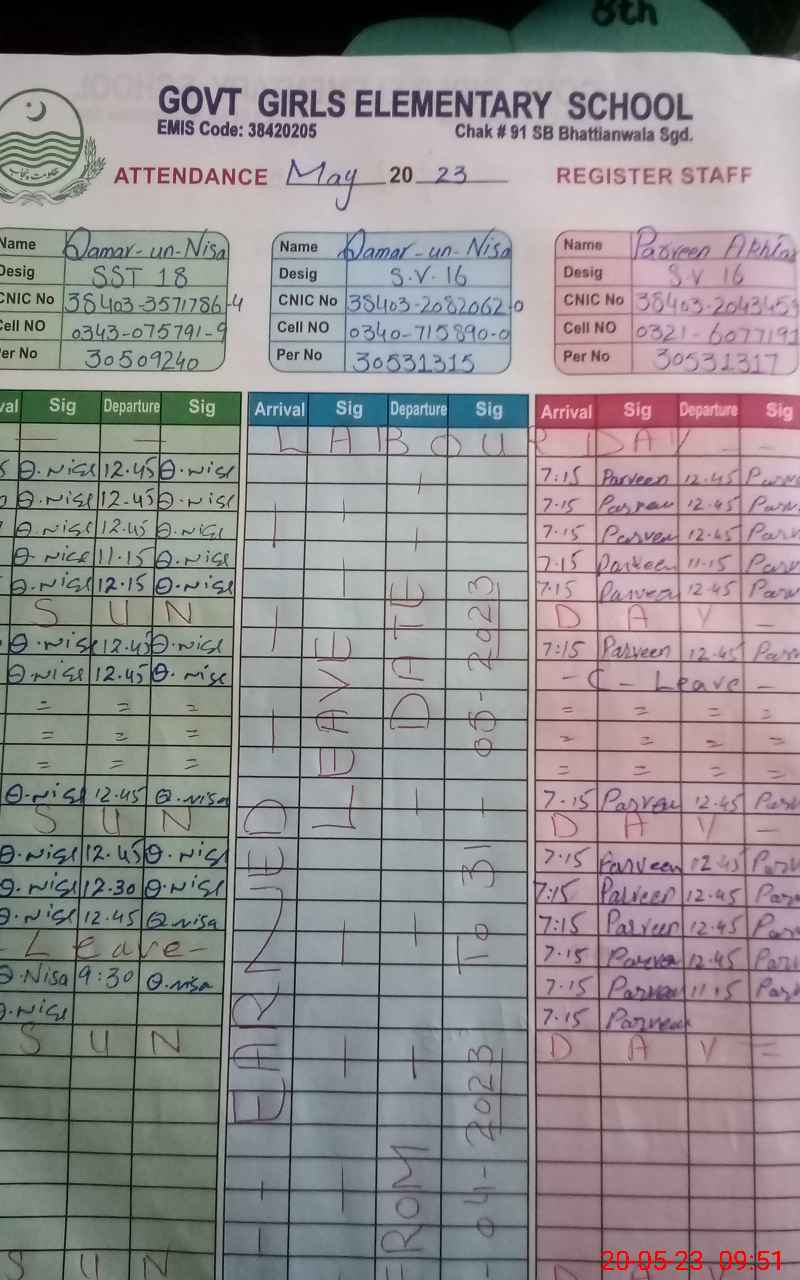 8th
GOVT GIRLS ELEMENTARY SCHOOL
EMIS Code: 38420205 Chak # 91 SB Bhattianwala Sgd.
ATTENDANCE May 20 23 REGISTER STAFF
Name Qamar-un-Nisa Name Qamar-un-Nisa Name Parveen Akhtar
Desig SST 18 Desig S.V. 16 Desig S.V 16
CNIC No 38403-3571786-4 CNIC No 38403-2082062-0 CNIC No 38403-2043459
Cell NO 0343-075791-9 Cell NO 0340-715890-0 Cell NO 0321-6077191
Per No 30509240 Per No 30531315 Per No 30531317
val Sig Departure Sig Arrival Sig Departure Sig Arrival Sig Departure Sig
— — LABOUR DAY - -
Q.Nisa 12.45 Q.Nisa 7:15 Parveen 12.45 Parv
Q.Nisa 12.45 Q.Nisa 7.15 Parveen 12.45 Parv
Q.Nisa 12.45 Q.Nisa 7.15 Parveen 12.45 Parv
Q.Nisa 11.15 Q.Nisa 7.15 Parveen 11.15 Parv
Q.Nisa 12.15 Q.Nisa 7.15 Parveen 12.45 Parv
S U N D A Y -
Q.Nisa 12.45 Q.Nisa 7:15 Parveen 12.45 Parv
Q.Nisa 12.45 Q.Nisa - C - Leave -
= = = = = = =
= = = = = = =
= = = = = = =
Q.Nisa 12.45 Q.Nisa 7.15 Parveen 12.45 Parv
S U N D A Y -
Q.Nisa 12.45 Q.Nisa 7:15 Parveen 12.45 Parv
Q.Nisa 12.30 Q.Nisa 7:15 Parveen 12.45 Parv
Q.Nisa 12.45 Q.Nisa 7:15 Parveen 12.45 Parv
- Leave - 7.15 Parveen 12.45 Parv
Q.Nisa 9:30 Q.Nisa 7.15 Parveen 11.15 Parv
Q.Nisa 7.15 Parveen
S U N D A Y =
S U N D A
EARNED
LEAVE
FROM DATE
04-2023 To 31-05-2023
20-05-23 09:51